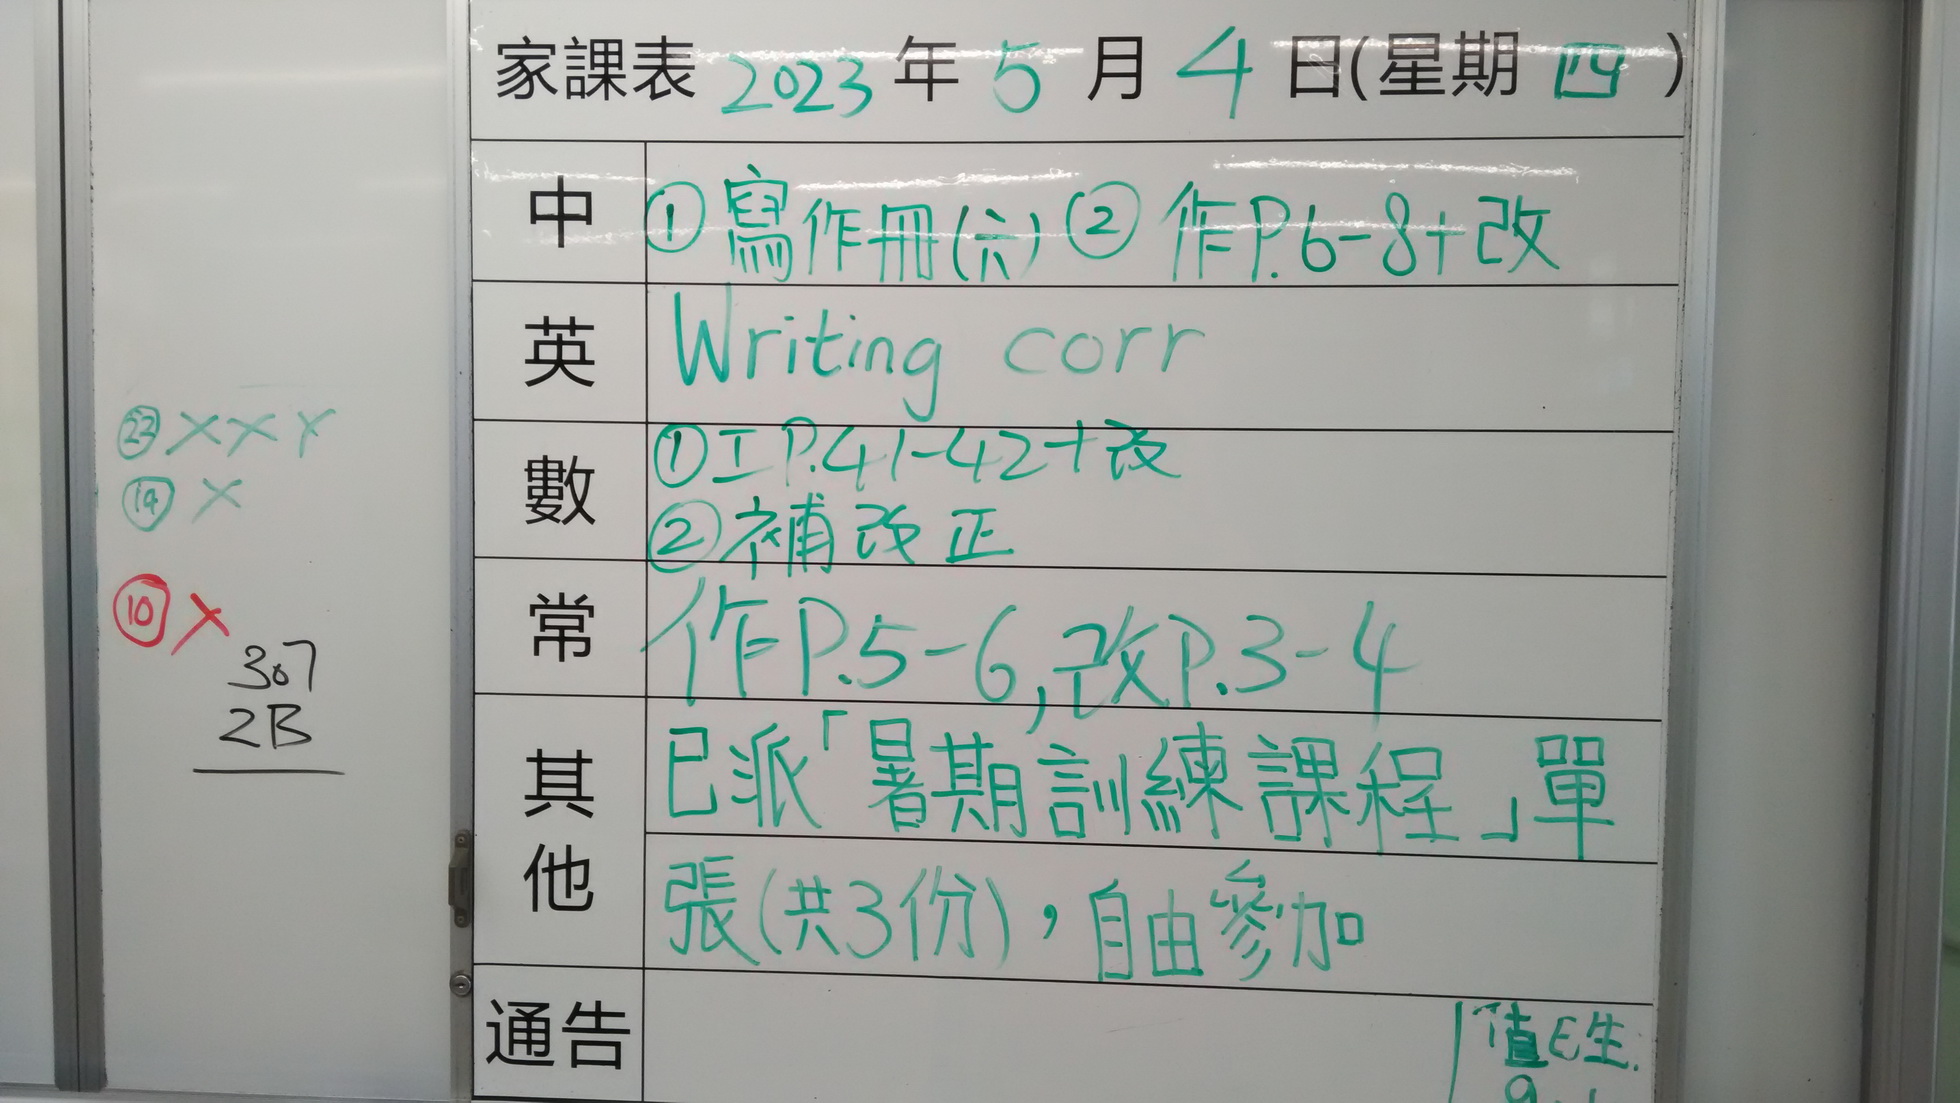 家課表 2023 年 5 月 4 日(星期 四 )
中 ①寫作冊(六) ② 作P.6-8+改
英 Writing corr
數 ①工P.41-42+改
②補改正
常 作P.5-6,改P.3-4
其他 已派「暑期訓練課程」單
張(共3份),自由參加
通告
值日生:
㉓ X X X
⑲ X
⑩ X
307
2B